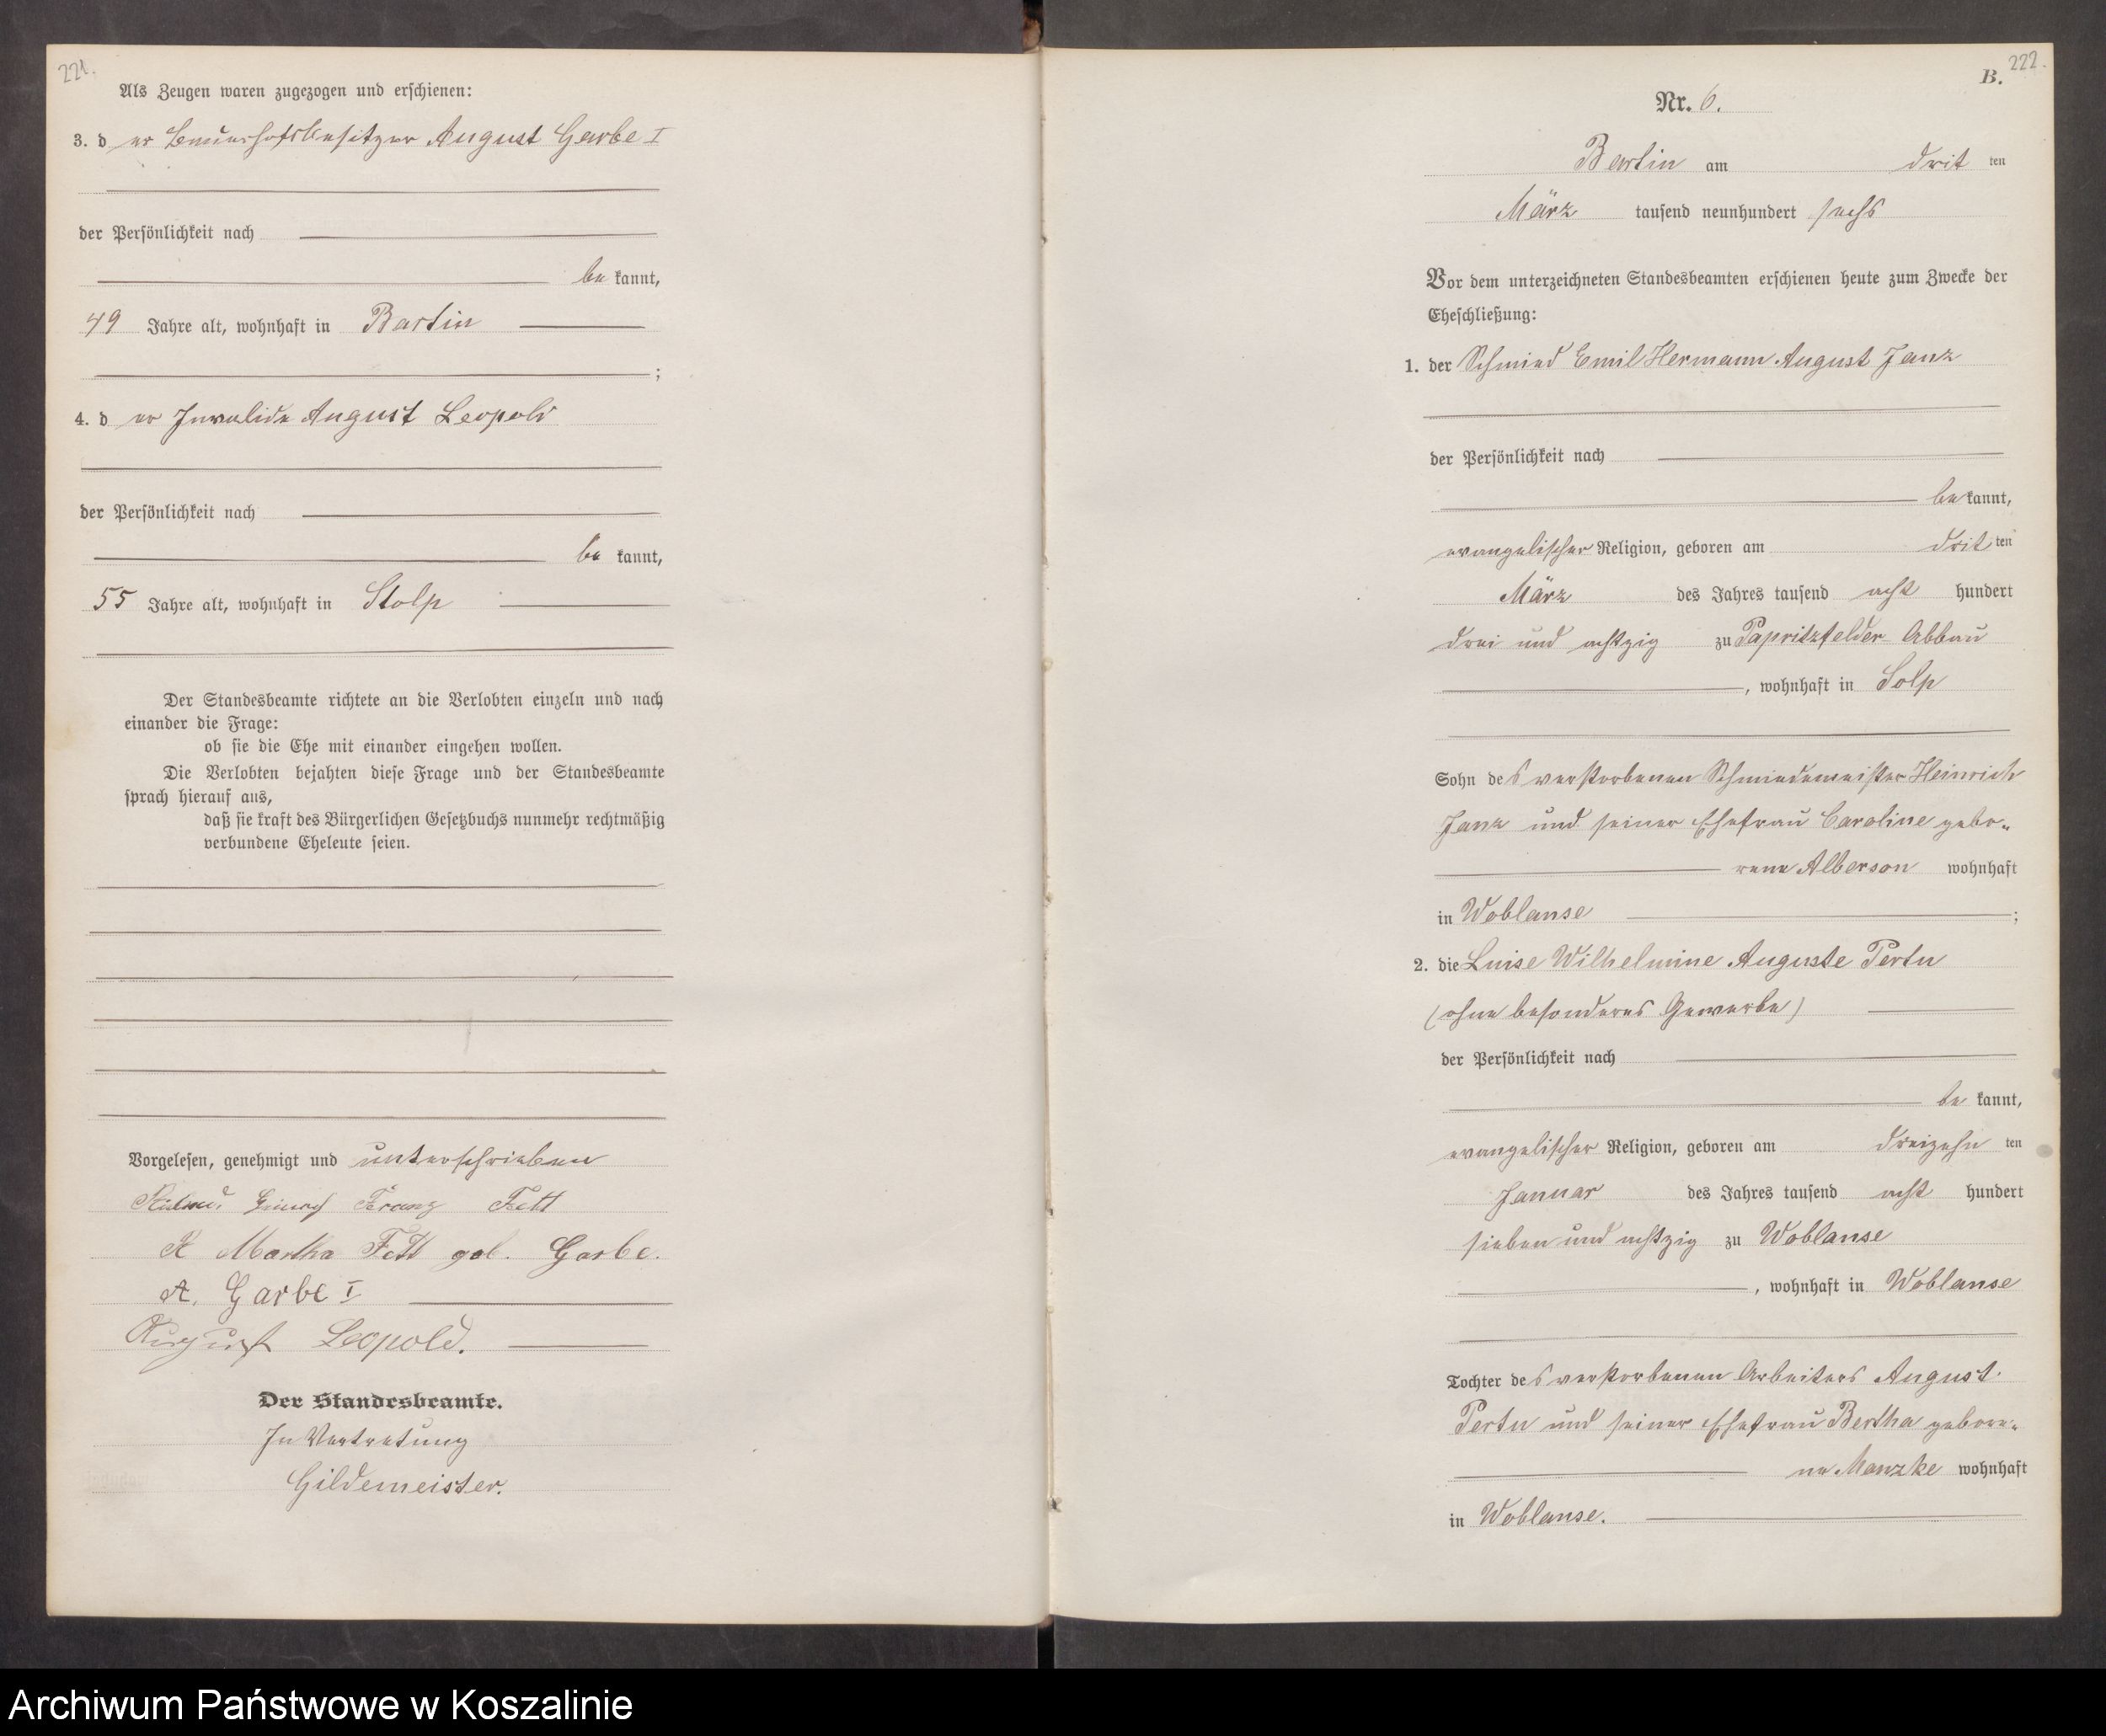 221.
Als Zeugen waren zugezogen und erschienen:
3. d er Bauerhofsbesitzer August Garbe I
der Persönlichkeit nach
be kannt,
49 Jahre alt, wohnhaft in Bartin
;
4. d er Invalide August Leopold
der Persönlichkeit nach
be kannt,
55 Jahre alt, wohnhaft in Stolp
Der Standesbeamte richtete an die Verlobten einzeln und nach
einander die Frage:
ob sie die Ehe mit einander eingehen wollen.
Die Verlobten bejahten diese Frage und der Standesbeamte
sprach hierauf aus,
daß sie kraft des Bürgerlichen Gesetzbuchs nunmehr rechtmäßig
verbundene Eheleute seien.
Vorgelesen, genehmigt und unterschrieben
Franz Fett
Martha Fett geb. Garbe.
A. Garbe I
August Leopold.
Der Standesbeamte.
In Vertretung
Gildemeister.
222.
B.
Nr. 6.
Bartin am drit ten
März tausend neunhundert sechs
Vor dem unterzeichneten Standesbeamten erschienen heute zum Zwecke der
Eheschließung:
1. der Schmied Emil Hermann August Janz
der Persönlichkeit nach
be kannt,
evangelischer Religion, geboren am drit ten
März des Jahres tausend acht hundert
drei und achtzig zu Papritzfelder Abbau
, wohnhaft in Solp
Sohn des verstorbenen Schmiedemeister Heinrich
Janz und seiner Ehefrau Caroline gebo-
rene Alberson wohnhaft
in Woblanse ;
2. die Luise Wilhelmine Auguste Pertu
(ohne besonderes Gewerbe)
der Persönlichkeit nach
be kannt,
evangelischer Religion, geboren am dreizehn ten
Januar des Jahres tausend acht hundert
sieben und achtzig zu Woblanse
, wohnhaft in Woblanse
Tochter des verstorbenen Arbeiters August
Pertu und seiner Ehefrau Bertha gebore-
ne Manzke wohnhaft
in Woblanse.
Archiwum Państwowe w Koszalinie